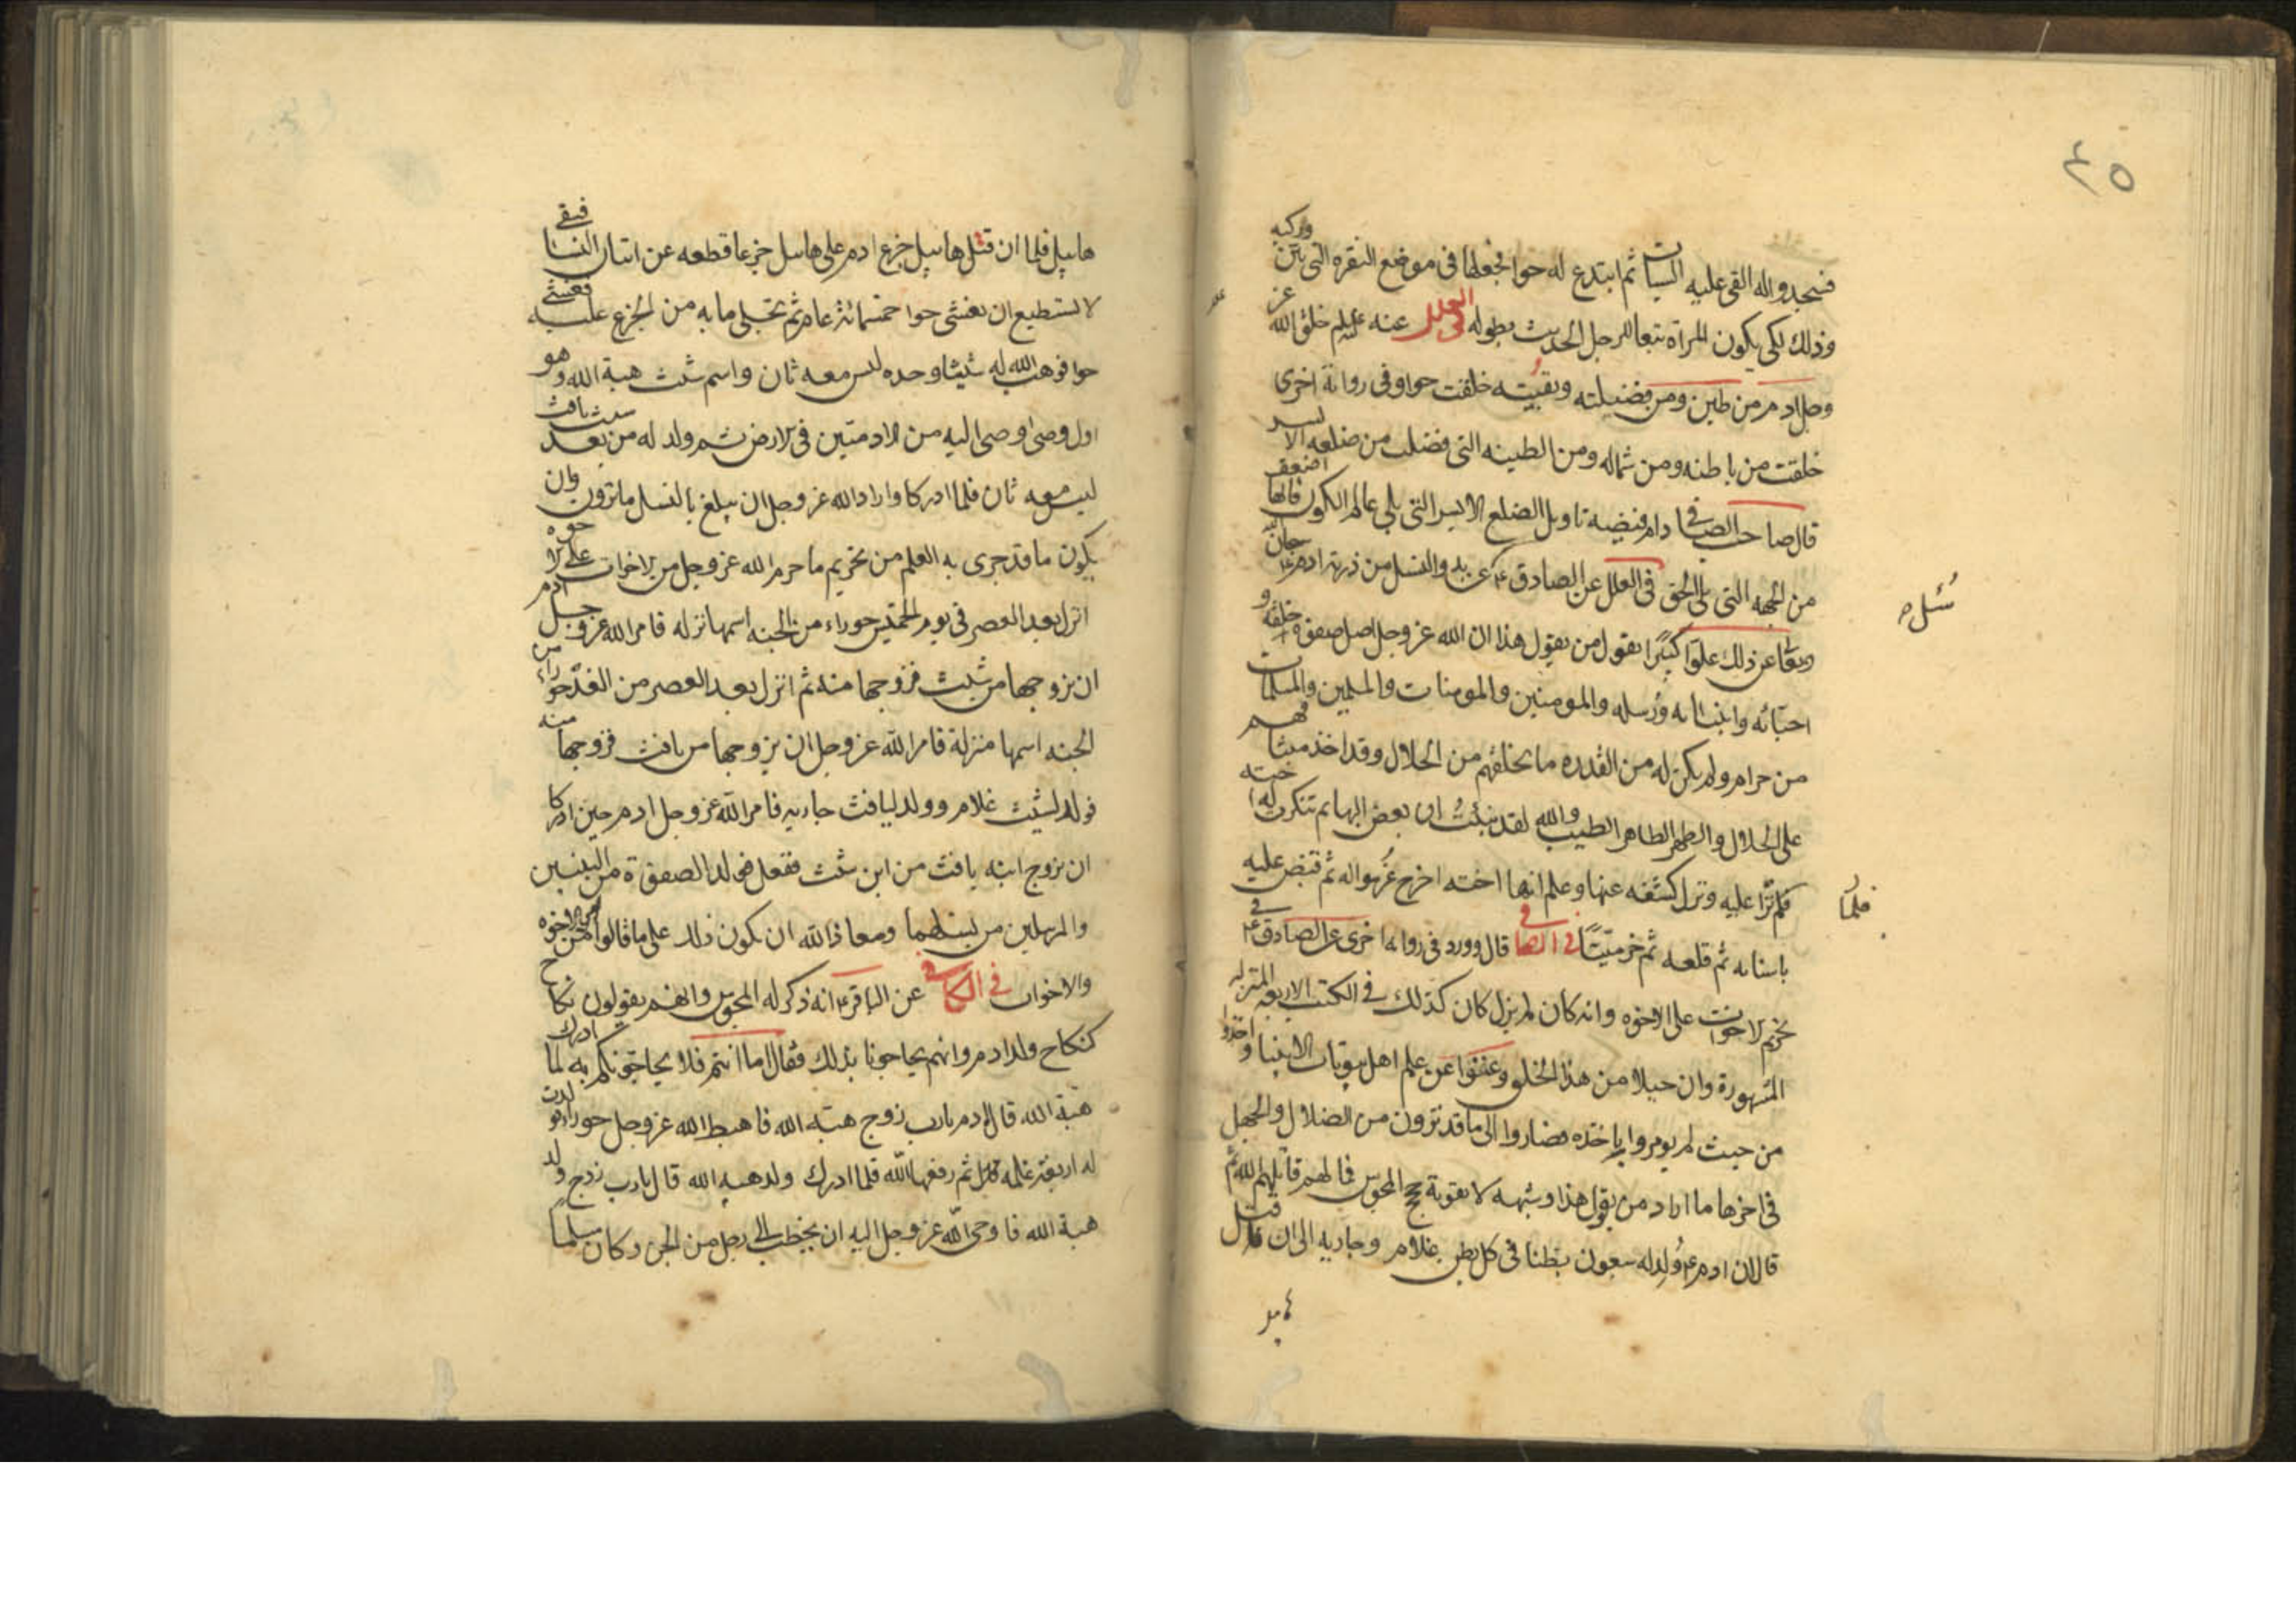 ٤٥
فسجدوا له القى عليه السبات ثم ابتدع له حوا فجعلها فى موضع النقره التى بين وركيه
وذلك لكى يكون المراة تبعا للرجل الحديث بطوله فى العلل عنه عليلم خلق الله عز
وجل ادم من طين ومن فضيلته وبقيته خلقت حوا وفى رواية اخرى
خلقت من باطنه ومن شماله ومن الطينه التى فضلت من ضلعه الايسر
قال صاحب الصافى دام فيضه تاويل الضلع الايسر التى يلى عالم الكون فانها اضعف
من الجهه التى يلى الحق فى العلل عن الصادق ع سئل عن بدو النسل من ذرية ادم ع
وتعا عن ذلك علوا كبيرا يقول من يقول هذا ان الله عز وجل اصل صفوة خلقه و
احبائه وانبيائه ورسله والمومنين والمومنات والمسلمين والمسلمات
من حرام ولم يكن له من القدره ما يخلقهم من الحلال وقد اخذ ميثاقهم
على الحلال والطهر الطاهر الطيب والله لقد نبئت ان بعض البهايم تنكرت له اخته
فلما نزا عليه ونزل كشفه عنها وعلم انها اخته اخرج غرموله ثم قبض عليه
باسنانه ثم قلعه ثم خر ميتا فى الصافى قال وورد فى رواية اخرى عن الصادق ع فى
تحريم الاخوات على الاخوه وانه كان لم يزل كان كذلك فى الكتب الاربعه المنزله
المشهورة وان جيلا من هذا الخلق رغبوا عن علم اهل بيوتات الانبيا واخذوا
من حيث لم يومروا باخذه فصاروا الى ما قد ترون من الضلال والجهل
فى اخرها ما اراد من يقول هذا وشبهه لا تقوية حجج المجوس فما لهم قاتلهم الله ثم
قال ان ادم ع ولد له سبعون بطنا فى كل بطن غلام وجاريه الى ان قتل
سئل ص
فلما
هابيل فلما ان قتل هابيل جزع ادم على هابيل جزعا قطعه عن اتيان النسا فبقى
لا يستطيع ان يغشى حوا خمسمائة عام ثم تجلى ما به من الجزع عليه فغشى
حوا فوهب الله له شيثا وحده ليس معه ثان واسم شيث هبة الله وهو
اول وصى اوصى اليه من الادميين فى الارض ثم ولد له من بعد شيث يافث
ليس معه ثان فلما ادركا واراد الله عز وجل ان يبلغ بالنسل ما ترون وان
يكون ما قد جرى به القلم من تحريم ما حرم الله عز وجل من الاخوات على الاخوه
انزل بعد العصر فى يوم الخميس حوراء من الجنه اسمها نزله فامر الله عز وجل ادم
ان يزوجها من شيث فزوجها منه ثم انزل بعد العصر من الغد حوراء من
الجنه اسمها منزلة فامر الله عز وجل ان يزوجها من يافث فزوجها منه
فولد لشيث غلام وولد ليافث جاريه فامر الله عز وجل ادم حين ادركا
ان يزوج ابنه يافث من ابن شيث ففعل فولد الصفوة من النبيين
والمرسلين من نسلهما ومعاذ الله ان يكون ذلك على ما قالوا من الاخوه
والاخوات فى الكافى عن الباقر ع انه ذكر له المجوس وانهم يقولون نكاح
كنكاح ولد ادم وانهم يحاجونا بذلك فقال اما انتم فلا يحاجونكم به لما ادرك
هبة الله قال ادم يارب زوج هبة الله فاهبط الله عز وجل حوراء فولدت
له اربعة غلمه ثم رفعها الله فلما ادرك ولد هبه الله قال يارب زوج ولد
هبة الله فاوحى الله عز وجل اليه ان يخطب الى رجل من الجن وكان مسلما